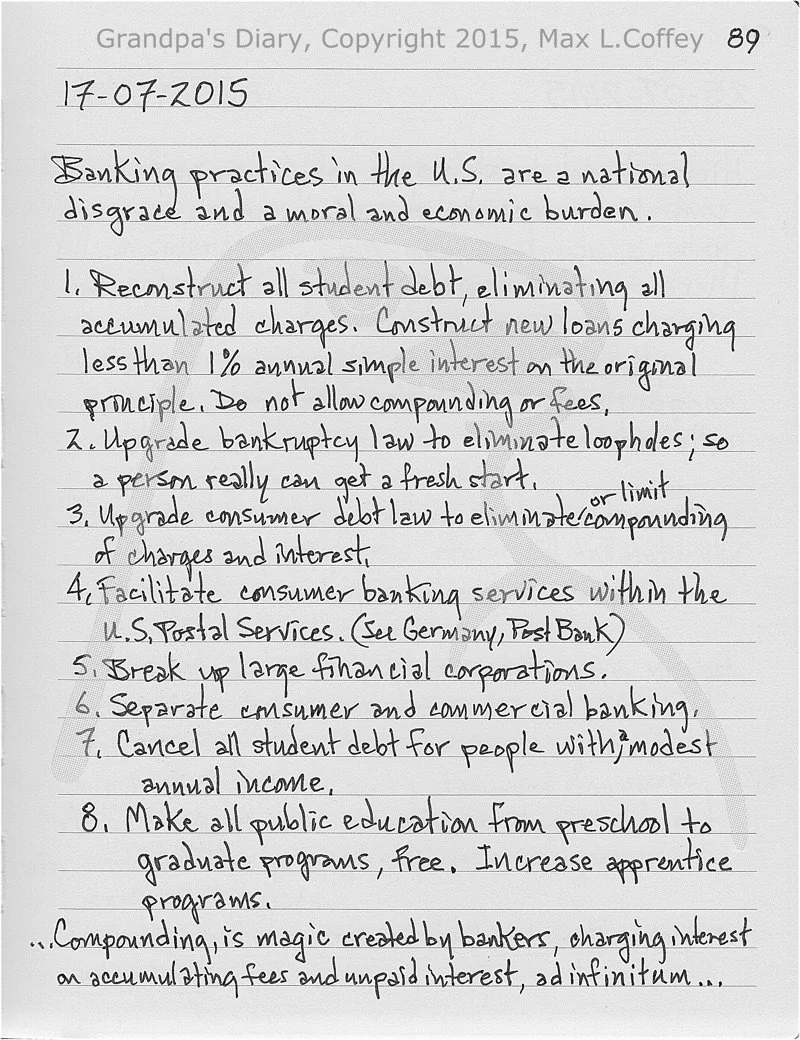 Grandpa's Diary, Copyright 2015, Max L.Coffey 89
17-07-2015
Banking practices in the U.S. are a national
disgrace and a moral and economic burden.
1. Reconstruct all student debt, eliminating all
accumulated charges. Construct new loans charging
less than 1% annual simple interest on the original
principle. Do not allow compounding or fees.
2. Upgrade bankruptcy law to eliminate loopholes; so
a person really can get a fresh start.
or limit
3. Upgrade consumer debt law to eliminate/compounding
of charges and interest.
4. Facilitate consumer banking services within the
U.S. Postal Services. (See Germany, Post Bank)
5. Break up large financial corporations.
6. Separate consumer and commercial banking.
7. Cancel all student debt for people with a modest
annual income.
8. Make all public education from preschool to
graduate programs, free. Increase apprentice
programs.
...Compounding, is magic created by bankers, charging interest
on accumulating fees and unpaid interest, ad infinitum...